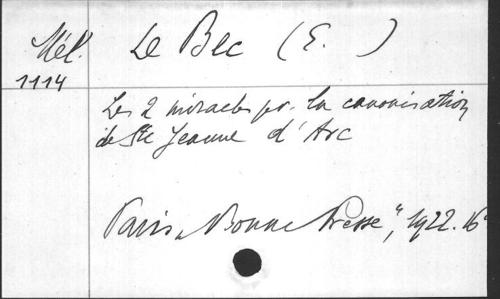 Mél. Le Bec (E. )
1114
Les 2 miracles pr. la canonisation
de Ste Jeanne d'Arc
Paris, "Bonne Presse", 1922. 16°